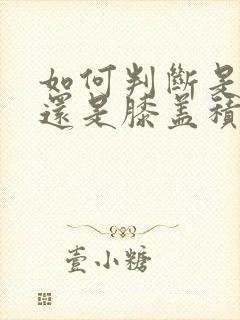 如何判斷是
還是膝盖積
壹小糖